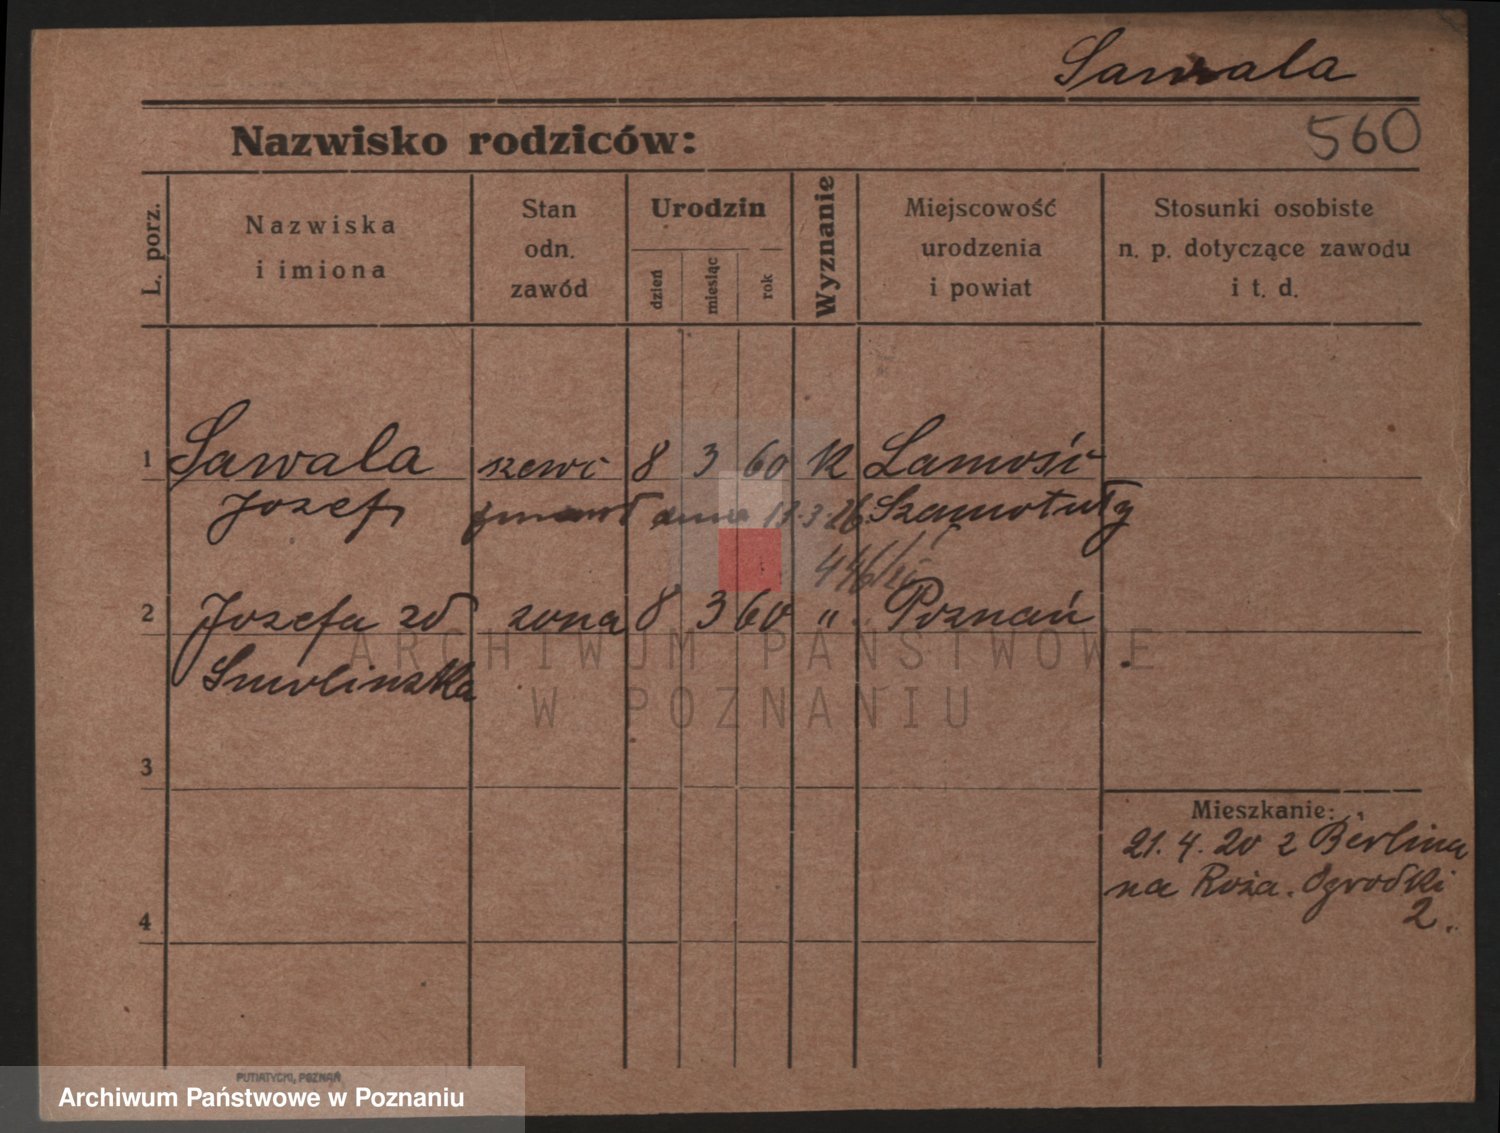 Sawala
Nazwisko rodziców:
560
L. porz.
Nazwiska
i imiona
Stan
odn.
zawód
Urodzin
dzień
miesiąc
rok
Wyznanie
Miejscowość
urodzenia
i powiat
Stosunki osobiste
n. p. dotyczące zawodu
i t. d.
1 Sawala szewc 8 3 60 K
Józef zmarł dnia 3.26. Szamotuły
2 Józefa zd żona 8 3 60 " Poznań
Smolinska
ARCHIWUM PAŃSTWOWE
W POZNANIU
3
Mieszkanie:
21. 4. 20 z Berlina
na Ogrodki
2.
4
PUTIATYCKI, POZNAŃ
Archiwum Państwowe w Poznaniu